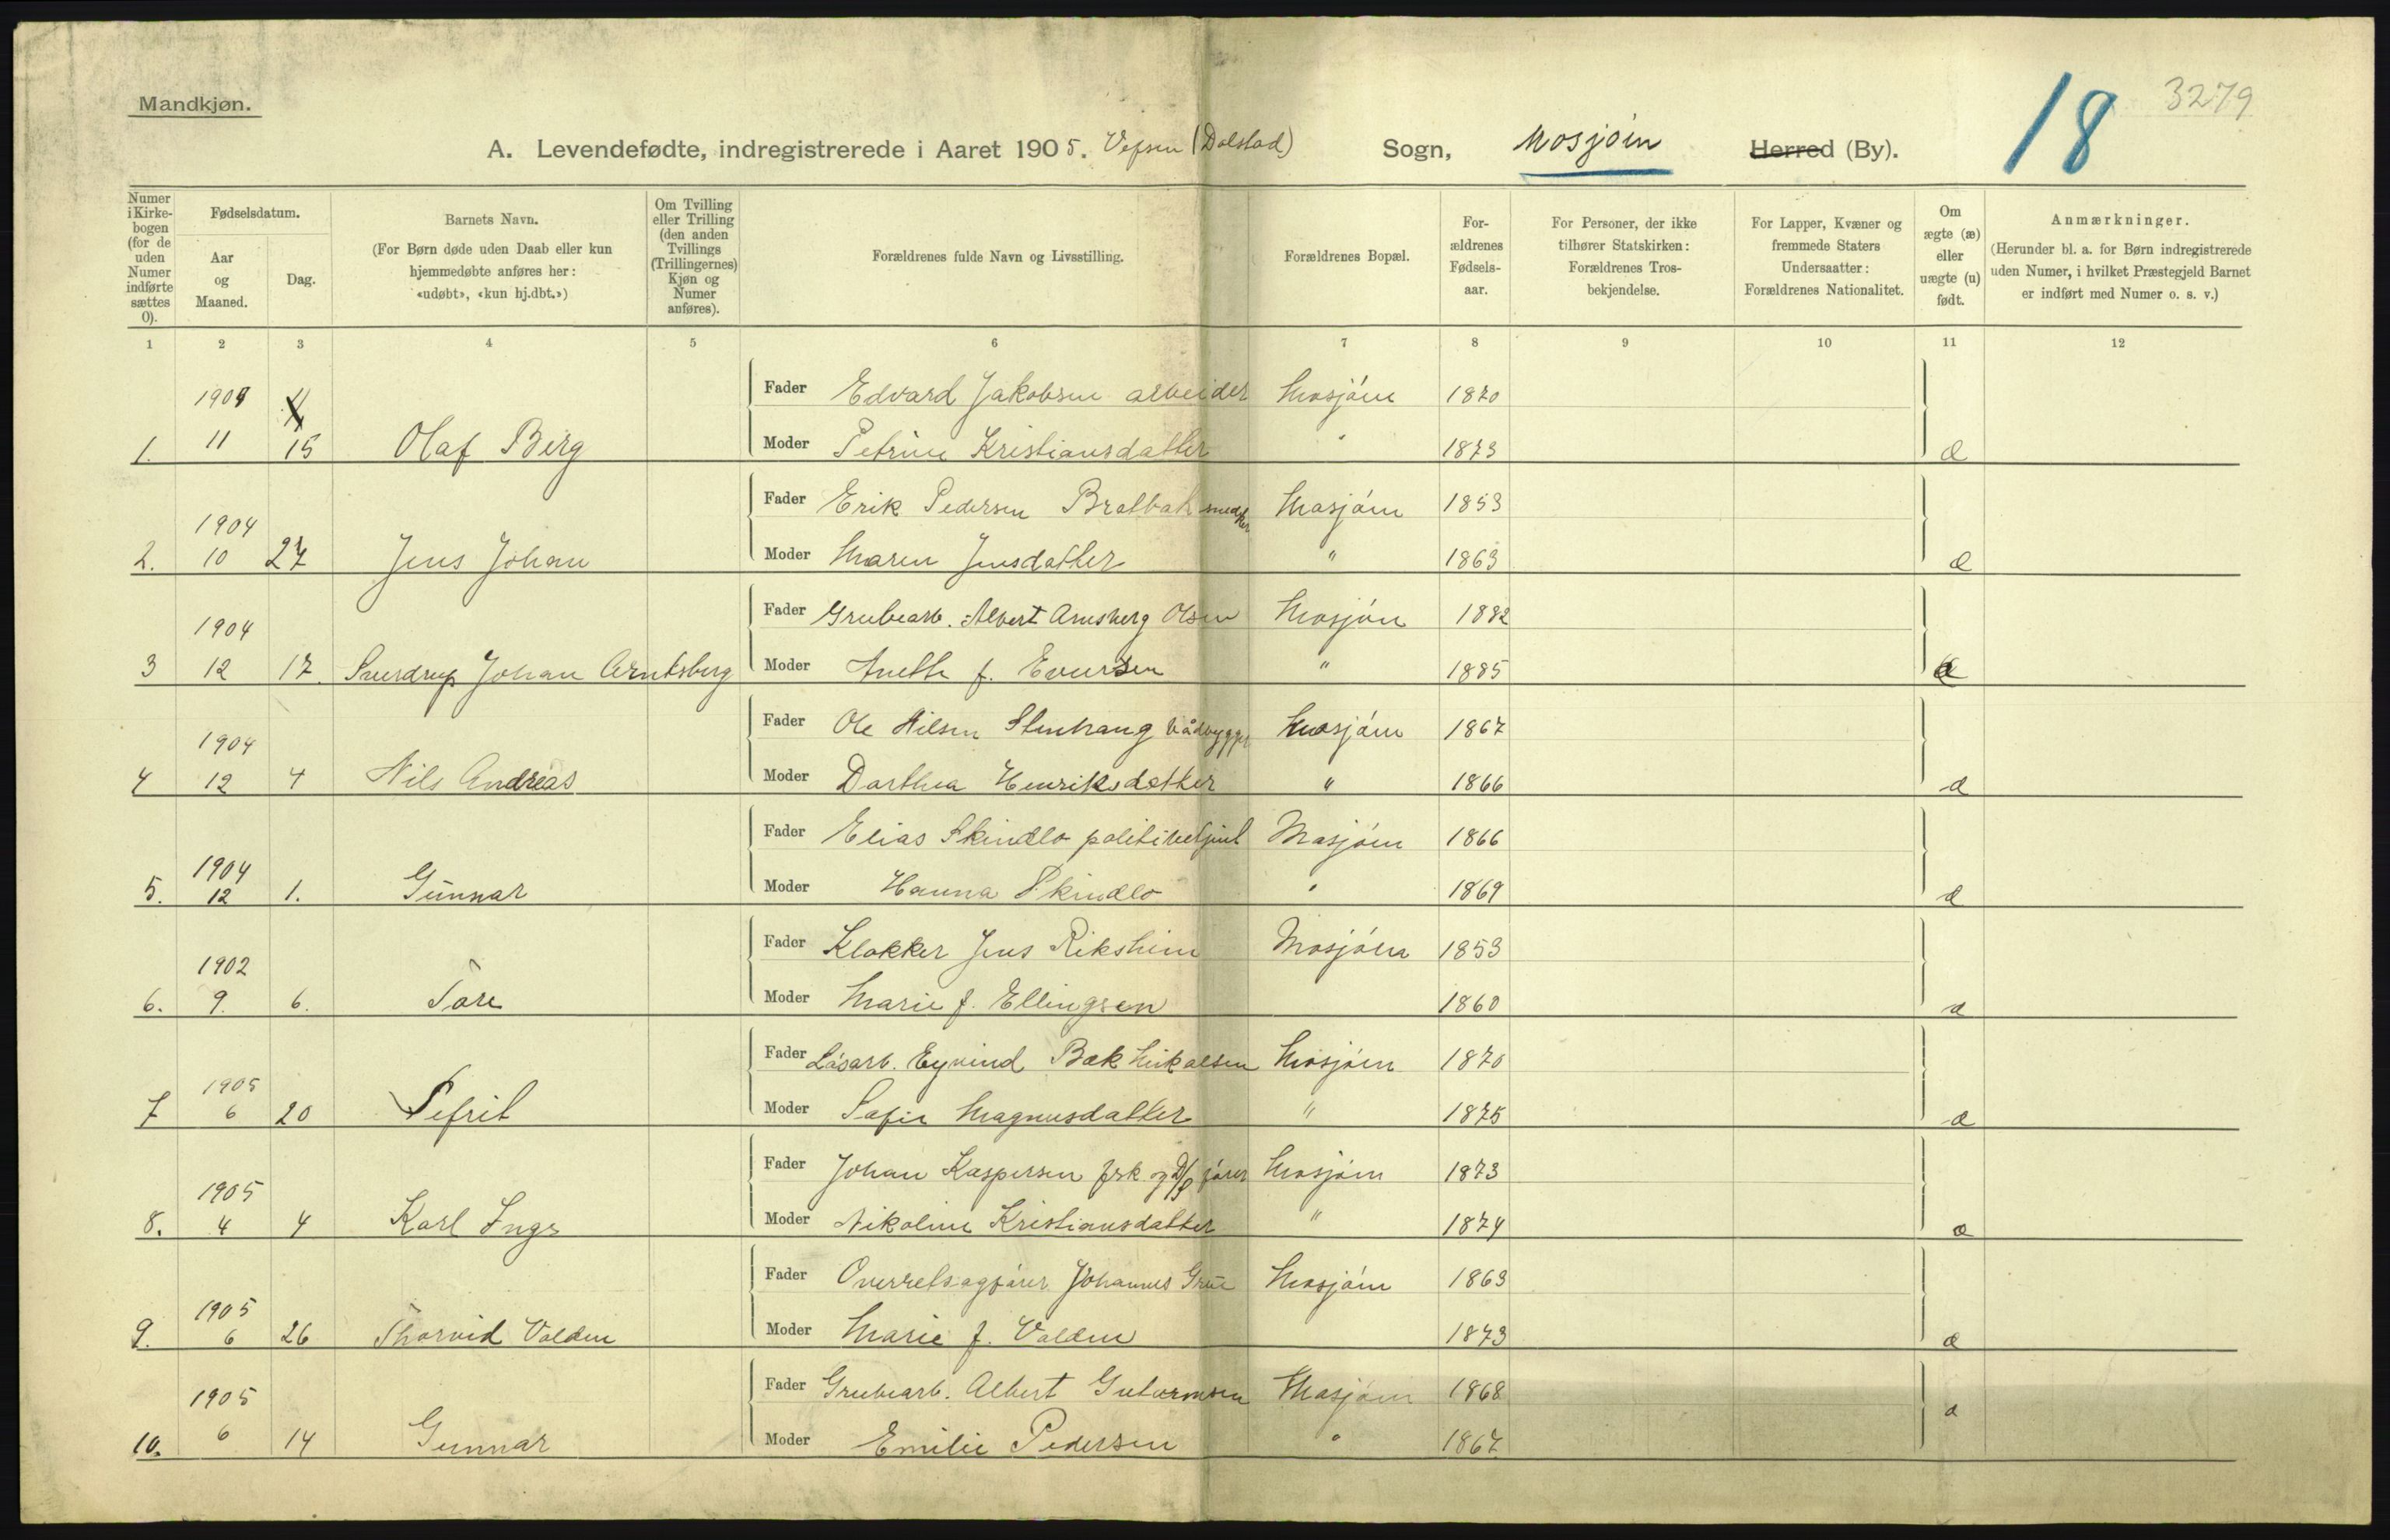 Mandkjøn.
3279
18
A. Levendefødte, indregistrerede i Aaret 1905. Vefsen (Dolstad) Sogn, Mosjøen Herred (By).
Numer i Kirke- bogen (for de uden Numer indførte sættes 0).
Fødselsdatum.
Aar og Maaned.
Dag.
Barnets Navn.
(For Børn døde uden Daab eller kun hjemmedøbte anføres her: «udøbt», «kun hj.dbt.»)
Om Tvilling eller Trilling (den anden Tvillings (Trillingernes) Kjøn og Numer anføres).
Forældrenes fulde Navn og Livsstilling.
Forældrenes Bopæl.
For- ældrenes Fødsels- aar.
For Personer, der ikke tilhører Statskirken: Forældrenes Tros- bekjendelse.
For Lapper, Kvæner og fremmede Staters Undersaatter: Forældrenes Nationalitet.
Om ægte (æ) eller uægte (u) født.
Anmærkninger.
(Herunder bl. a. for Børn indregistrerede uden Numer, i hvilket Præstegjeld Barnet er indført med Numer o. s. v.)
1 2 3 4 5 6 7 8 9 10 11 12
1904 Fader Edvard Jakobsen arbeider Mosjöen 1870
1. 11 15 Olaf Berg Moder Petrine Kristiansdatter " 1873 æ
1904 Fader Erik Pedersen Bratbak snedker Mosjöen 1853
2. 10 27 Jens Johan Moder Maren Jensdatter " 1863 æ
1904 Fader Grubearb. Albert Arnsberg Olsen Mosjöen 1882
3 12 17. Sverdrup Johan Arntsberg Moder Anette f. Evensen " 1885 æ
1904 Fader Ole Nilsen Stenhaug bådbygger Mosjöen 1867
4 12 4 Nils Andreas Moder Dorthea Henriksdatter " 1866 æ
1904 Fader Elias Skindlo politibetjent Mosjöen 1866
5. 12 1. Gunnar Moder Hanna Skindlo " 1869 æ
1902 Fader Klokker Jens Riksheim Mosjöen 1853
6. 9. 6. Tore Moder Marie f. Ellingsen 1860 æ
1905 Fader Lösarb. Eyvind Bæk Mikalsen Mosjöen 1870
7 6 20 Moder Sofie Magnusdatter " 1875 æ
1905 Fader Johan Kaspersen fsk og D/S förer Mosjöen 1873
8. 4 4 Karl Inge Moder Nikoline Kristiansdatter " 1874 æ
1905 Fader Overretsagförer Johannes Grüe Mosjöen 1863
9. 6 26 Thorvid Valden Moder Marie f. Valden 1873 æ
1905 Fader Grubearb. Albert Gutormsen Mosjöen 1868
10. 6 14 Gunnar Moder Emilie Pedersen " 1867. æ